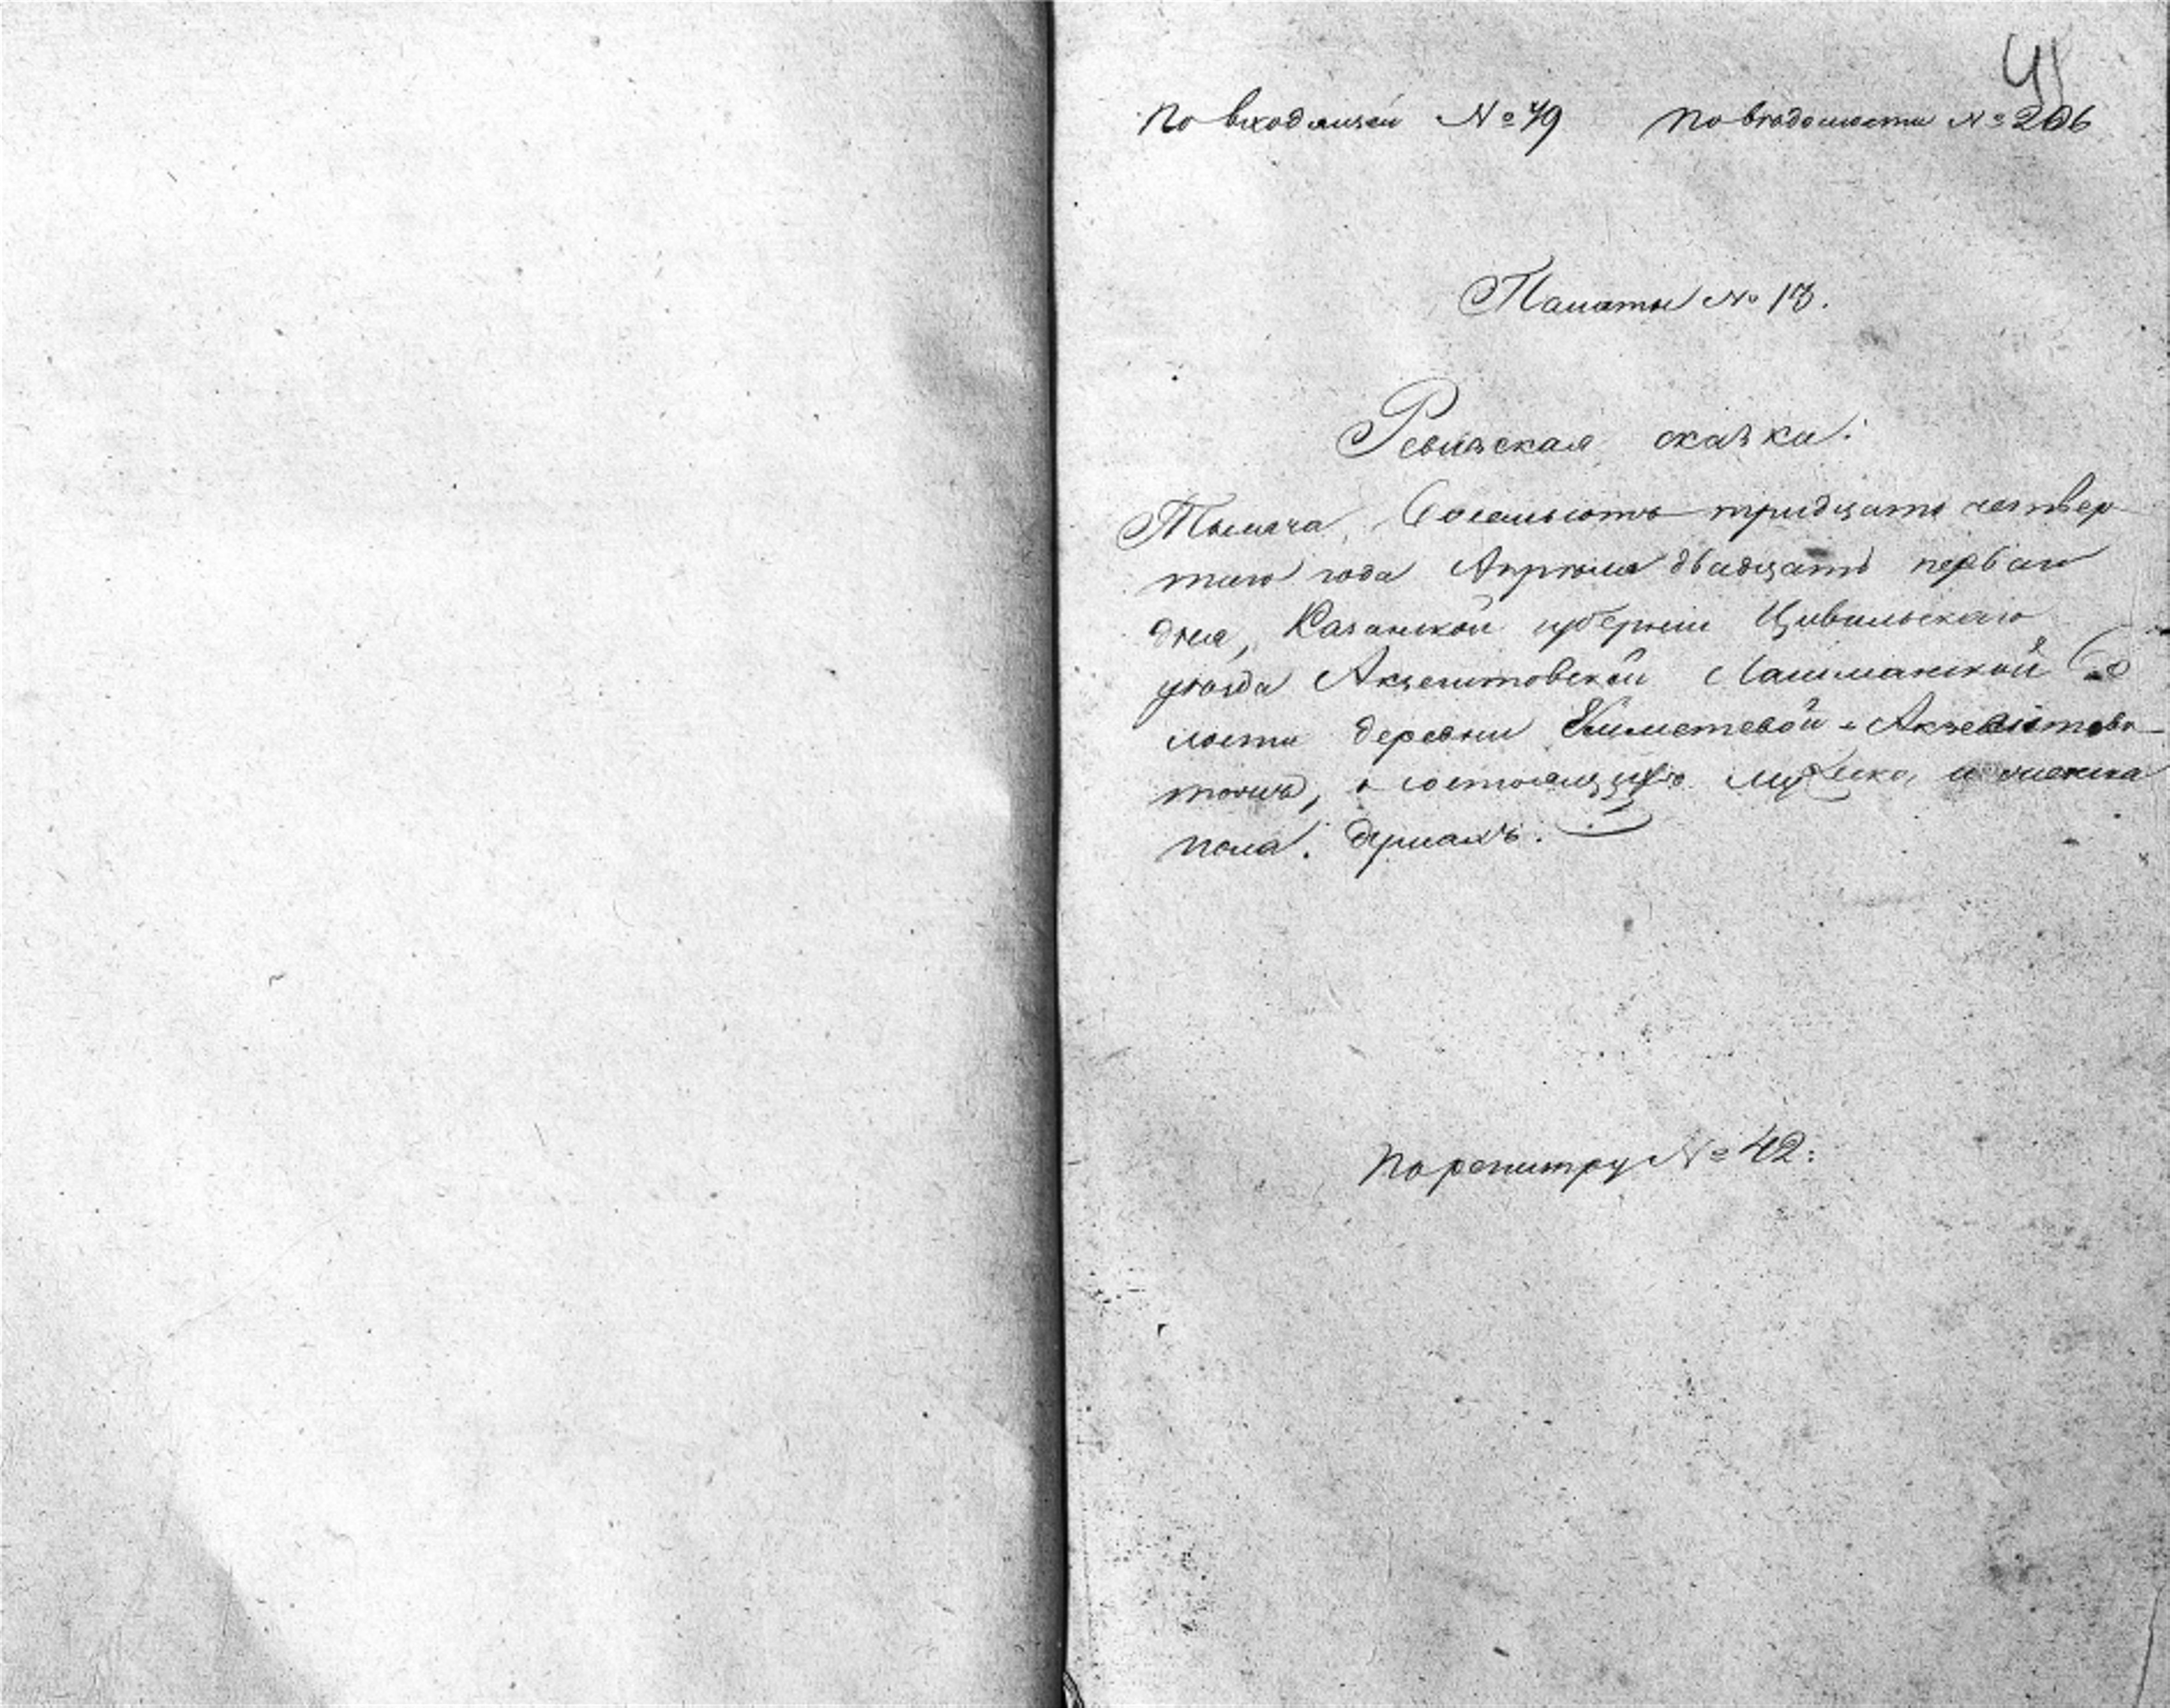 41
По входящей № 79 По вѣдомости № 206
Палаты № 13.
Ревизская сказка:
Тысяча, Восемьсотъ тридцать четвер
таго года Апрѣля двадцать перваго
дня, Казанской губернии Цивильскаго
уѣзда Акзегитовской Лашманской Во
лости деревни Акзегитова
тожъ, о состоящихъ мужеска, и женска
пола. душахъ.
По регистру № 42: